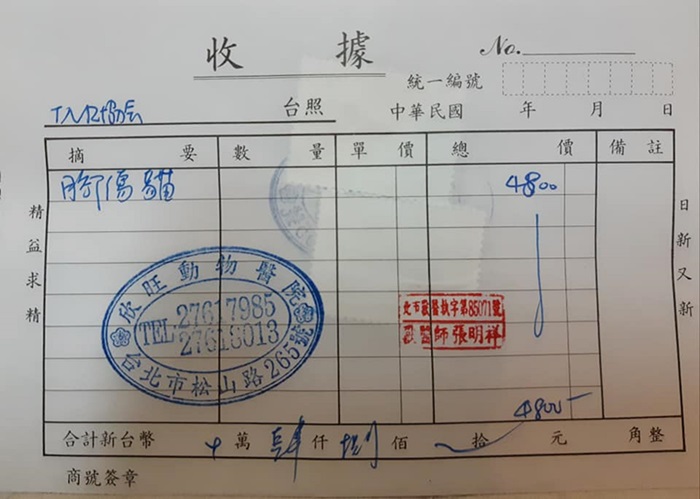 收據
No.
統一編號
台照
中華民國 年 月 日
摘要 數量 單價 總價 備註
傷貓 4800
精益求精
日新又新
欣旺動物醫院
TEL:27617985
27618013
台北市松山路265號
北市獸醫執字第85071號
獸醫師張明祥
4800-
合計新台幣 萬 肆 仟 捌 佰 拾 元 角整
商號簽章